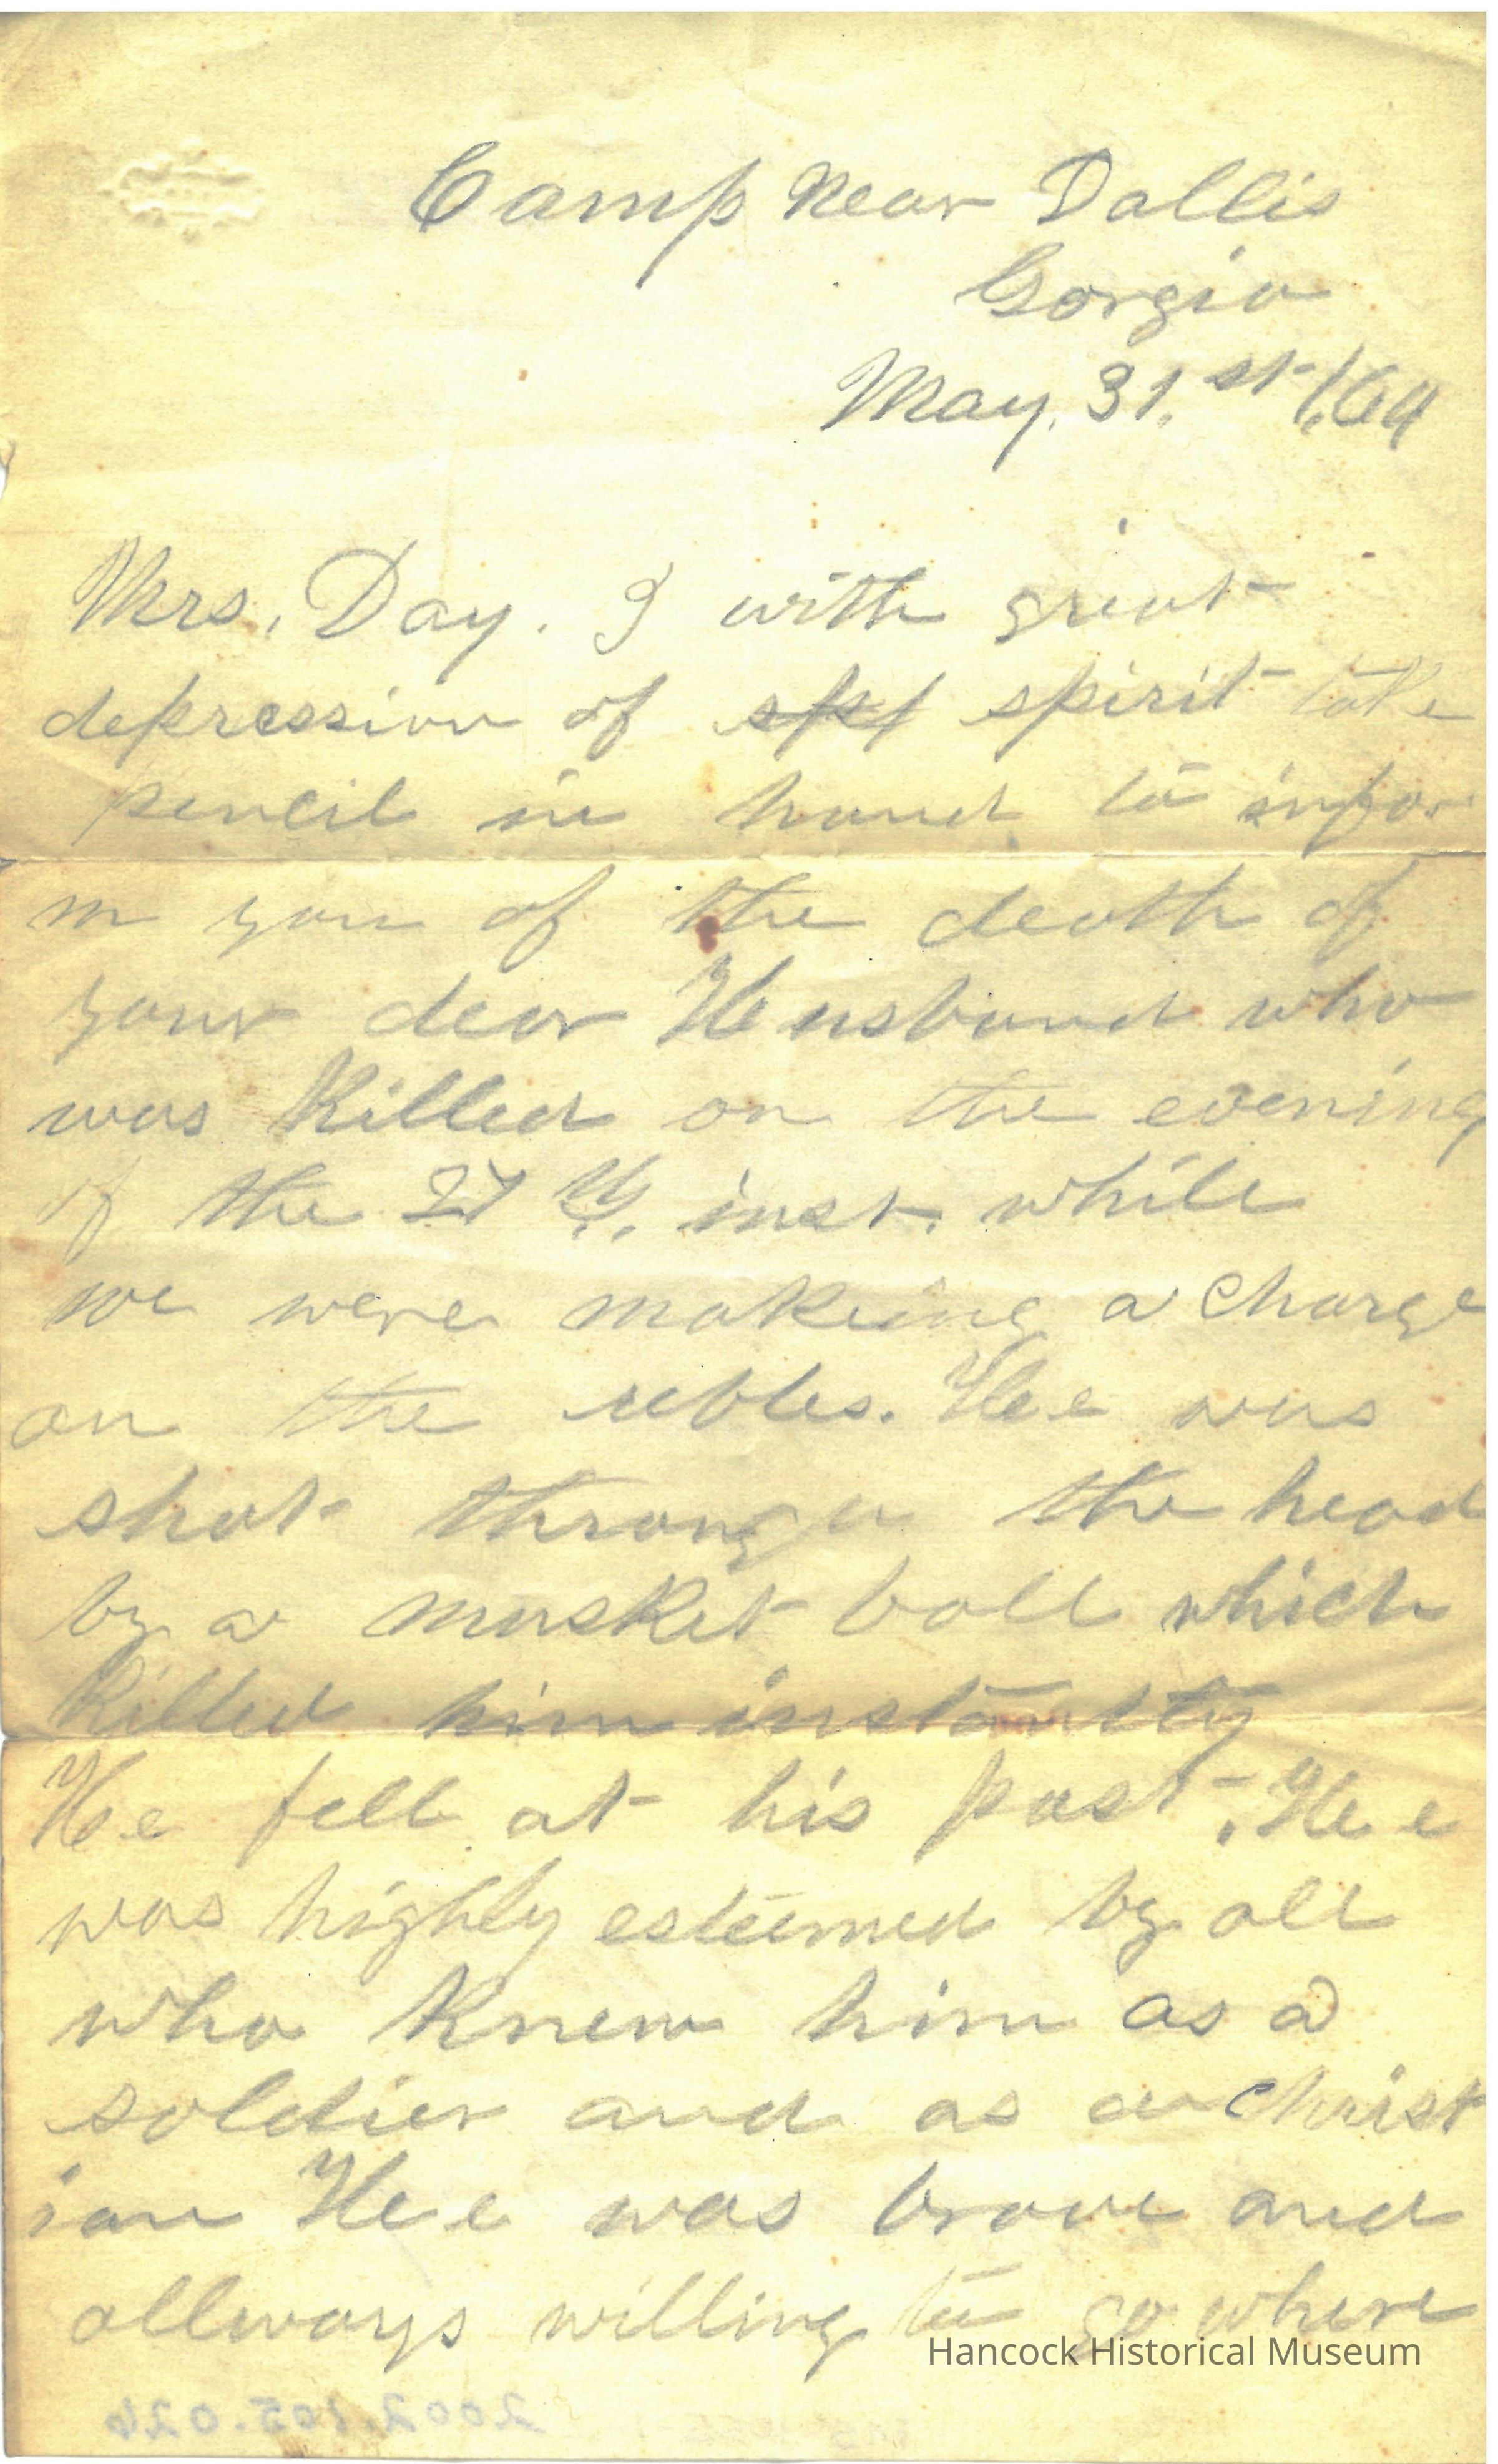 Camp Near Dallis
Gorgia
May. 31.st /64
Mrs. Day. I with great
depression of spirit take
pencil in hand to infor
m you of the death of
your dear Husband who
was Killed on the evening
of the 27th. inst. while
we were makeing a charge
on the rebles. Hee was
shot through the head
by a musket ball which
Killed him instantly
He fell at his post. Hee
was highly esteemed by all
who Knew him as a
soldier and as a christ
ian Hee was brave and
allways willing to go where
Hancock Historical Museum